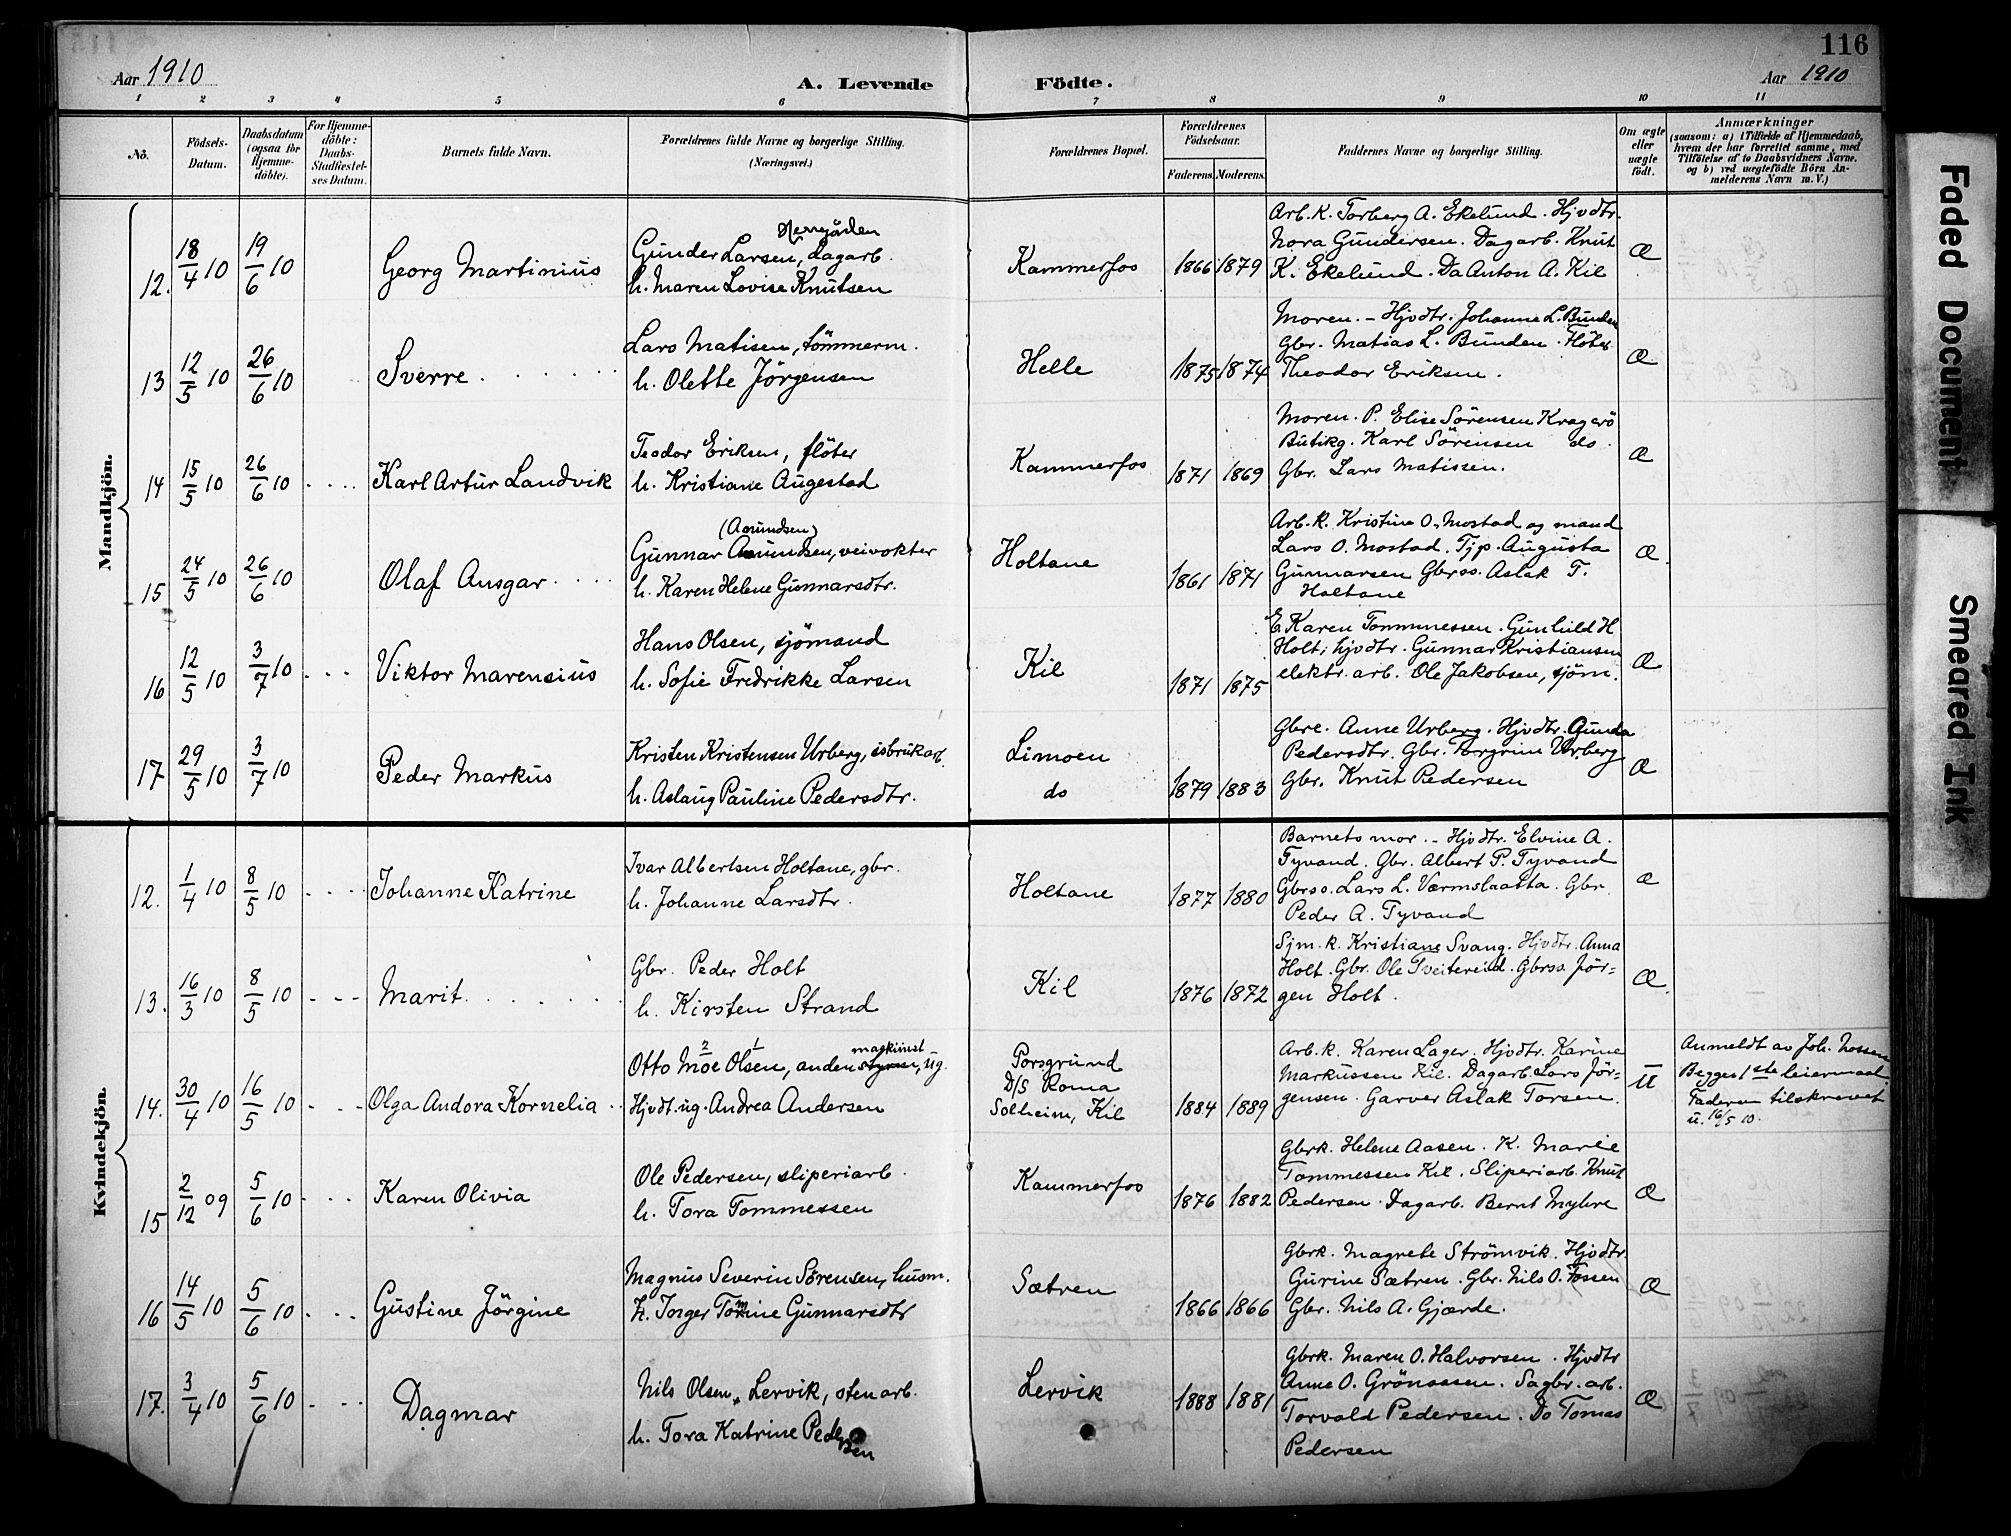 116
Aar 1910
A. Levende Födte.
Aar 1910
1 2 3 4 5 6 7 8 9 10 11
No.
Födsels-
Datum.
Daabsdatum
(ogsaa for
Hjemme-
döbte).
For Hjemme-
döbte:
Daabs-
Stadfæstel-
ses Datum.
Barnets fulde Navn.
Forældrenes fulde Navne og borgerlige Stilling.
(Næringsvei.)
Forældrenes Bopæl.
Forældrenes
Födselsaar.
Faderens. Moderens.
Faddernes Navne og borgerlige Stilling.
Om ægte
eller
uægte
födt.
Anmærkninger
(saasom: a) i Tilfælde af Hjemmedaab,
hvem der har forrettet samme, med
Tilföielse af to Daabsvidners Navne.
og b) ved uægtefödte Börn An-
melderens Navn m.V.)
Mandkjön.
12. 18/4 10 19/6 10 Georg Martinius
Herregården
Gunder Larsen, Dagarb.
h. Maren Lovise Knutsen
Kammerfos 1866 1879
Arb. K. Torberg A. Ekelund. Hjvdtr.
Nora Gundersen. Dagarb. Knut
K. Ekelund. Do Anton A. Kil
Æ
13 12/5 10 26/6 10 Sverre
Lars Matisen, tömmerm.
h. Olette Jörgensen
Helle 1875 1874
Moren. - Hjvdtr. Johanne L. Bunden
Gbr. Matias L. Bunden. Flöter
Theodor Eriksen.
Æ
14 15/5 10 26/6 10 Karl Artur Landvik
Teodor Eriksen, flöter
h. Kristiane Augestad
Kammerfos 1871 1869
Moren. P. Elise Sörensen Kragerö
Butikg. Karl Sörensen do.
Gbr. Lars Matissen.
Æ
15 24/5 10 26/6 10 Olaf Ansgar
(Amundsen)
Gunnar Amundsen, veivokter
h. Karen Helene Gunnarsdtr.
Holtane 1861 1871
Arb. K. Kristine O. Mostad og mand
Lars O. Mostad. Tjp. Augusta
Gunnarsen Gbrss. Aslak T.
Holtane
Æ
16 12/5 10 3/7 10 Viktor Marensius
Hans Olsen, sjömand
h. Sofie Fredrikke Larsen
Kil 1871 1875
E. Karen Tommessen. Gunhild H
Holt, hjvdtr. Gunnar Kristiansen
elektr. arb. Ole Jakobsen, sjöm.
Æ
17 29/5 10 3/7 10 Peder Markus
Kristen Kristensen Urberg, isbrukarb.
h. Aslaug Pauline Pedersdtr.
Limoen
do
1879 1883
Gbre. Anne Urberg. Hjvdtr. Gunda
Pedersdtr. Gbr. Torgrim Urberg
Gbr. Knut Pedersen
Æ
Kvindekjön.
12. 1/4 10 8/5 10 Johanne Katrine
Ivar Albertsen Holtane, gbr.
h. Johanne Larsdtr.
Holtane 1877 1880
Barnets mor. - Hjvdtr. Elvine A.
Tyvand. Gbr. Albert P. Tyvand
Gbrss. Lars L. Værmslaatta. Gbr.
Peder A. Tyvand
Æ
13. 16/3 10 8/5 10 Marit
Gbr. Peder Holt
h. Kirsten Strand
Kil 1876 1872
Sjm. k. Kristiane Svang. Hjvdtr. Anna
Holt. Gbr. Ole Tveitereid. Gbrss. Jör-
gen Holt.
Æ
14. 30/4 10 16/5 10 Olga Andora Kornelia
2 1 maskinist
Otto Moe Olsen, anden styrm, ug.
Hjvdt. ug. Andrea Andersen
Porsgrund
D/S Roma
Solheim, Kil
1884 1889
Arb. K. Karen Lager. Hjvdtr. Karine
Markussen Kil. Dagarb. Lars Jör-
gensen. Garver Aslak Torsen.
U
Anmeldt av Joh. Nossen
Begges 1ste leiermaal.
Faderen tilskrevet
u. 16/5 10.
15 2/12 09 5/6 10 Karen Olivia
Ole Pedersen, sliperiarb.
h. Tora Tommessen
Kammerfos 1876 1882
Gbrk. Helene Aasen. K. Marie
Tommessen Kil. Sliperiarb. Knut
Pedersen. Dagarb. Bernt Myhre
Æ
16 14/5 10 5/6 10 Gustine Jörgine
Magnus Severin Sörensen, husm.
h. Inger Tomine Gunnarsdtr
Sætren 1866 1866
Gbrk. Magrete Strömvik. Hjvdtr.
Gurine Sætren. Gbr. Nils O. Fossen
Gbr. Nils A. Gjærde.
Æ
17. 3/4 10 5/6 10 Dagmar
Nils Olsen, Lervik, stenarb.
h. Tora Katrine Pedersen
Lervik 1888 1881
Gbrk. Maren O. Halvorsen. Hjvdtr
Anne O. Grönaasen. Sagbr. arb.
Torvald Pedersen. Do Tomas
Pedersen
Æ
Faded Document
Smeared Ink